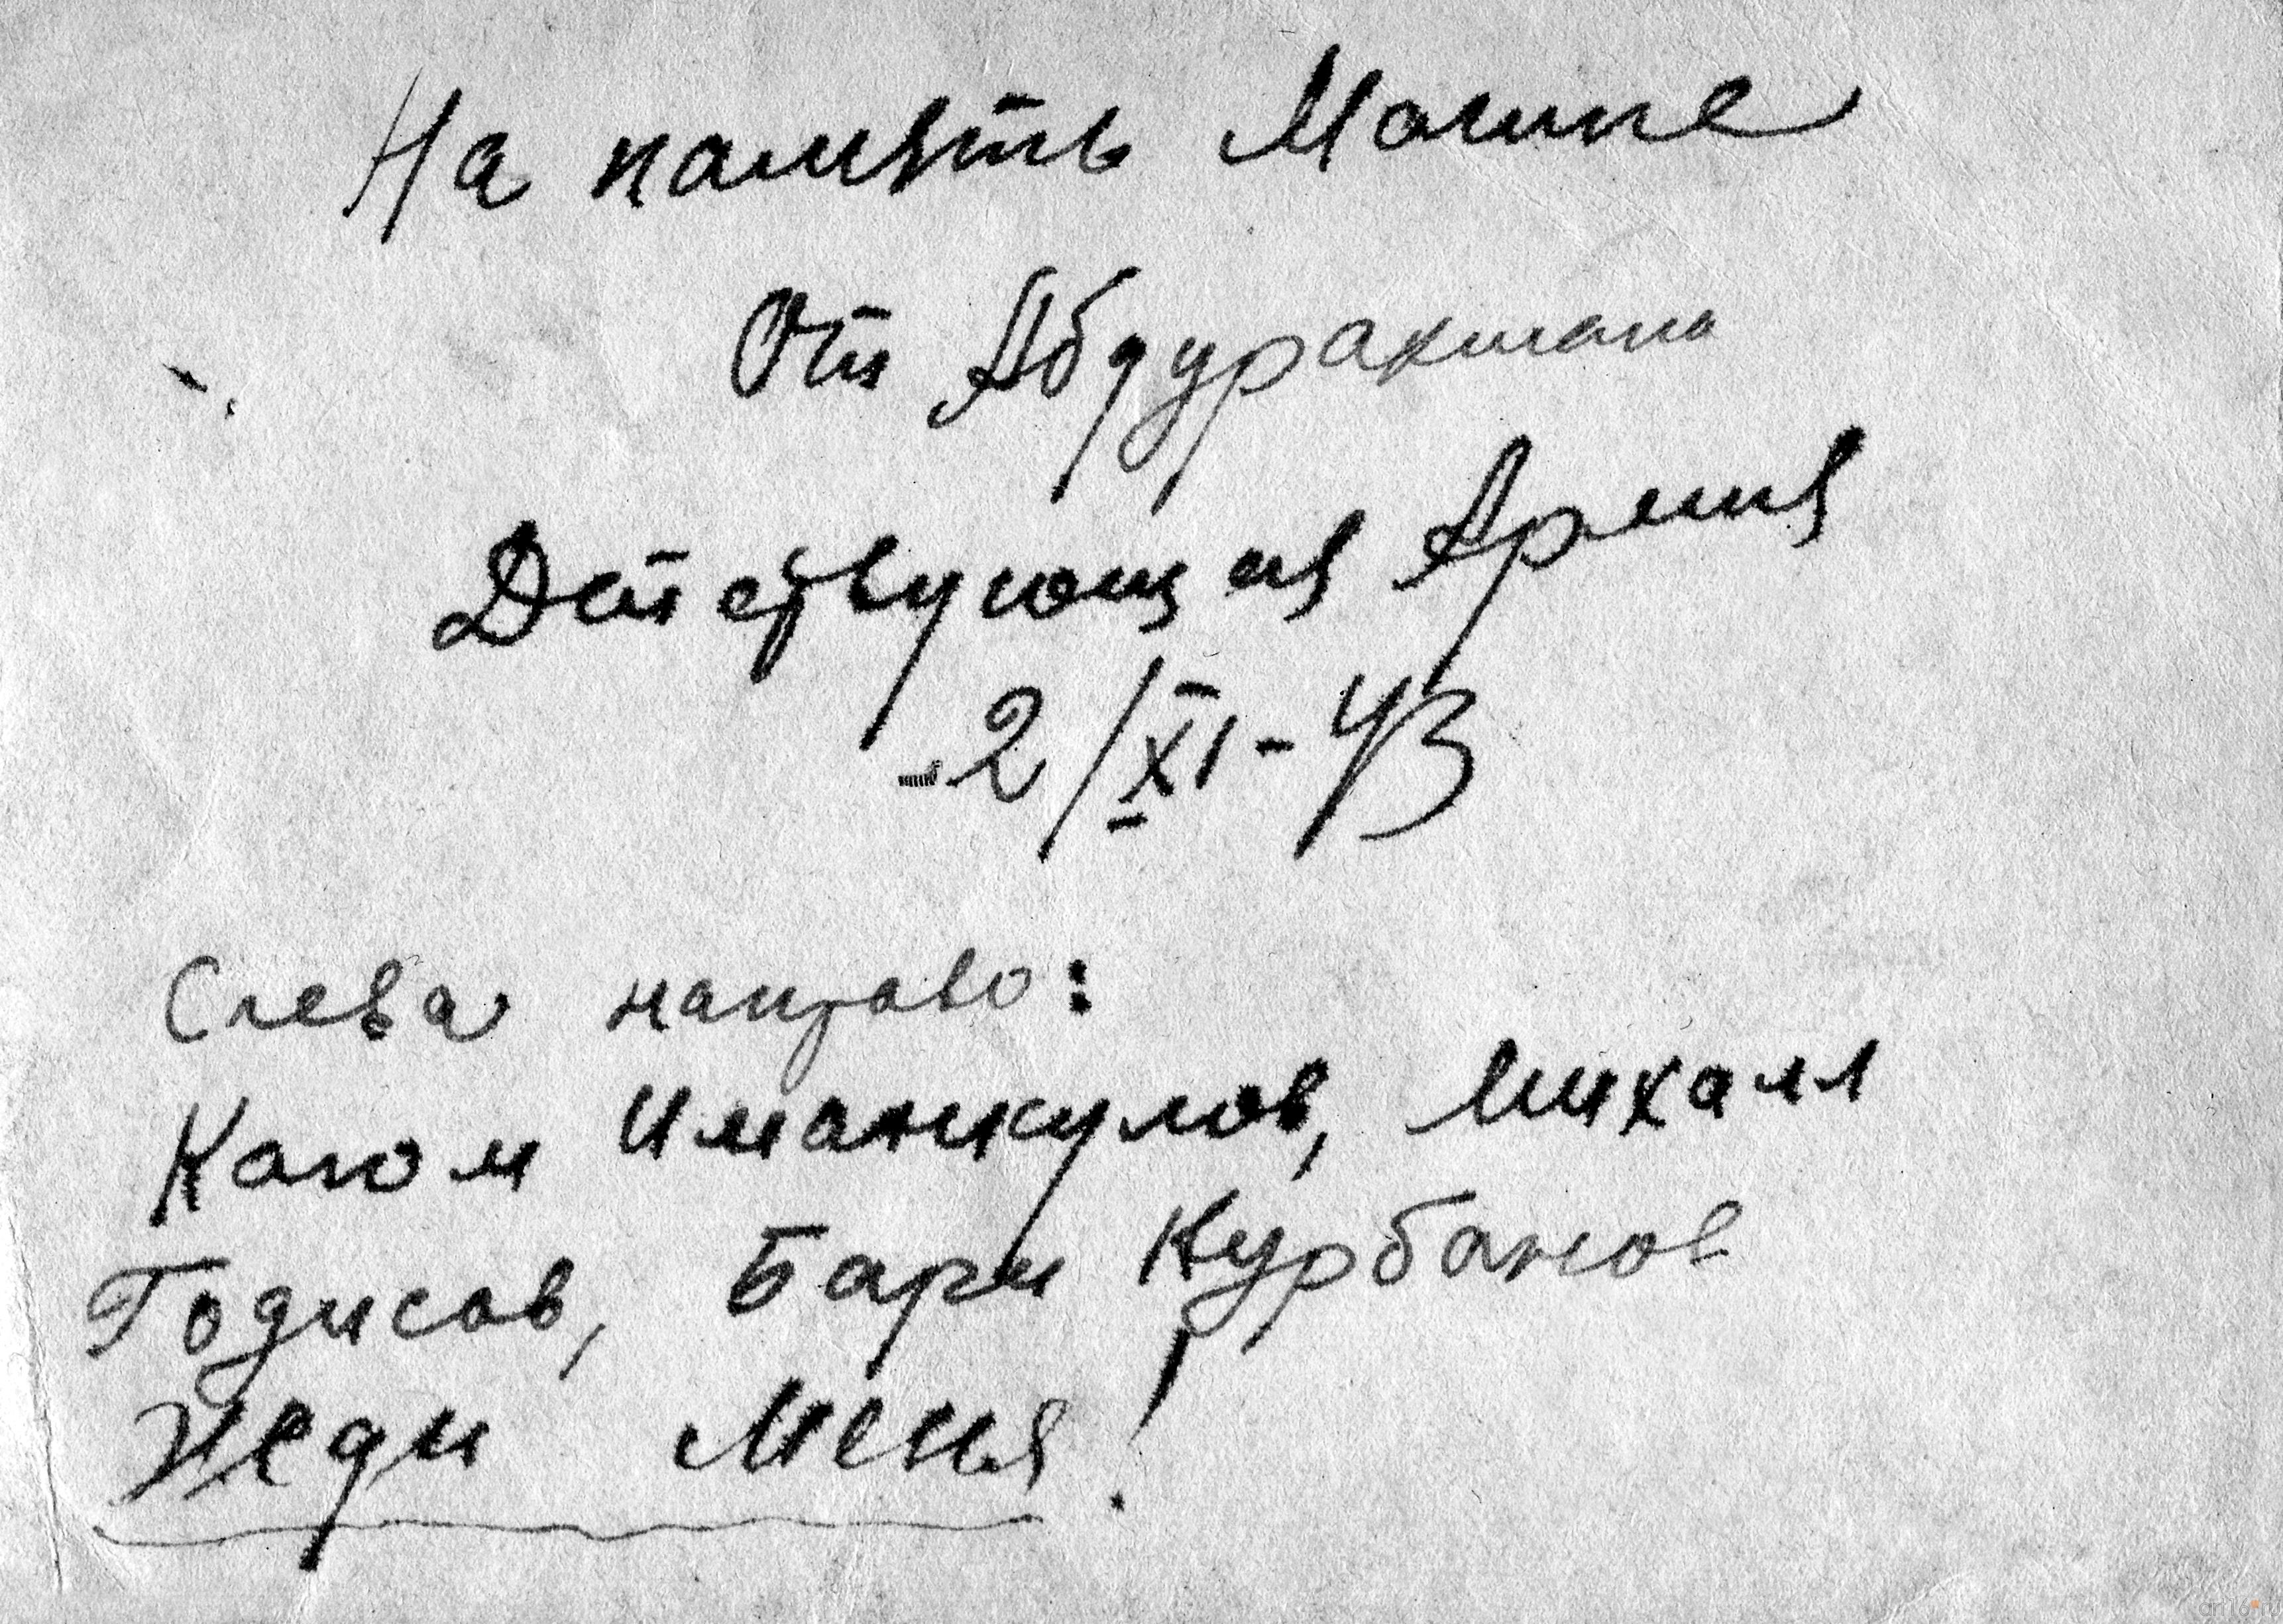 На память
От Абдурахмана
Действующая Армия
2/XI-43
Слева направо:
Каюм Иманкулов, Михаил
Годисов, Бари Курбанов
Жди меня!